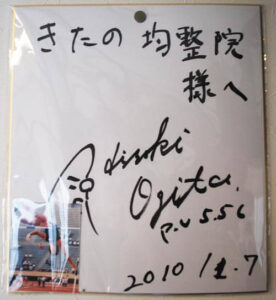 きたの 均整院
様へ
Hiroki
Ogita.
P.V 5.56
2010/1.7